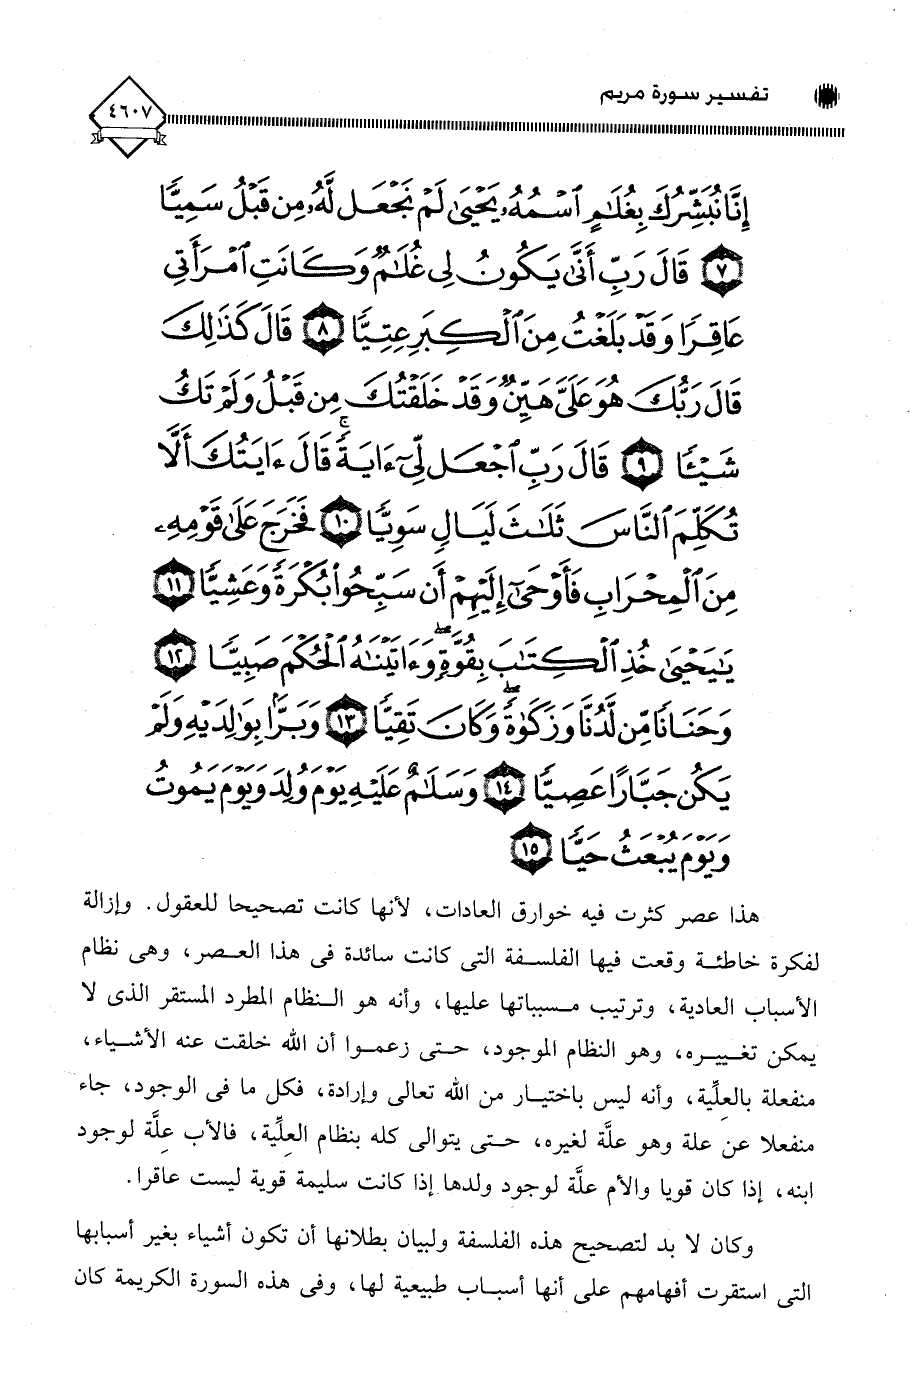 تفسير سورة مريم
٤٦٠٧
إِنَّا نُبَشِّرُكَ بِغُلَٰمٍ ٱسْمُهُۥ يَحْيَىٰ لَمْ نَجْعَل لَّهُۥ مِن قَبْلُ سَمِيًّا
٧ قَالَ رَبِّ أَنَّىٰ يَكُونُ لِى غُلَٰمٌ وَكَانَتِ ٱمْرَأَتِى
عَاقِرًا وَقَدْ بَلَغْتُ مِنَ ٱلْكِبَرِ عِتِيًّا ٨ قَالَ كَذَٰلِكَ
قَالَ رَبُّكَ هُوَ عَلَىَّ هَيِّنٌ وَقَدْ خَلَقْتُكَ مِن قَبْلُ وَلَمْ تَكُ
شَيْـًٔا ٩ قَالَ رَبِّ ٱجْعَل لِّىٓ ءَايَةً ۚ قَالَ ءَايَتُكَ أَلَّا
تُكَلِّمَ ٱلنَّاسَ ثَلَٰثَ لَيَالٍ سَوِيًّا ١٠ فَخَرَجَ عَلَىٰ قَوْمِهِۦ
مِنَ ٱلْمِحْرَابِ فَأَوْحَىٰٓ إِلَيْهِمْ أَن سَبِّحُوا۟ بُكْرَةً وَعَشِيًّا ١١
يَٰيَحْيَىٰ خُذِ ٱلْكِتَٰبَ بِقُوَّةٍ ۖ وَءَاتَيْنَٰهُ ٱلْحُكْمَ صَبِيًّا ١٢
وَحَنَانًا مِّن لَّدُنَّا وَزَكَوٰةً ۖ وَكَانَ تَقِيًّا ١٣ وَبَرًّۢا بِوَٰلِدَيْهِ وَلَمْ
يَكُن جَبَّارًا عَصِيًّا ١٤ وَسَلَٰمٌ عَلَيْهِ يَوْمَ وُلِدَ وَيَوْمَ يَمُوتُ
وَيَوْمَ يُبْعَثُ حَيًّا ١٥
هذا عصر كثرت فيه خوارق العادات، لأنها كانت تصحيحا للعقول. وإزالة
لفكرة خاطئة وقعت فيها الفلسفة التى كانت سائدة فى هذا العصر، وهى نظام
الأسباب العادية، وترتيب مسبباتها عليها، وأنه هو النظام المطرد المستقر الذى لا
يمكن تغييره، وهو النظام الموجود، حتى زعموا أن الله خلقت عنه الأشياء،
منفعلة بالعلِّية، وأنه ليس باختيار من الله تعالى وإرادة، فكل ما فى الوجود، جاء
منفعلا عن علة وهو علَّة لغيره، حتى يتوالى كله بنظام العلِّية، فالأب علَّة لوجود
ابنه، إذا كان قويا والأم علَّة لوجود ولدها إذا كانت سليمة قوية ليست عاقرا.
وكان لا بد لتصحيح هذه الفلسفة ولبيان بطلانها أن تكون أشياء بغير أسبابها
التى استقرت أفهامهم على أنها أسباب طبيعية لها، وفى هذه السورة الكريمة كان